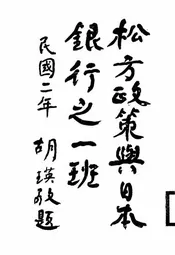 松方政策與日本
銀行之一班
民國二年 胡瑛敬題